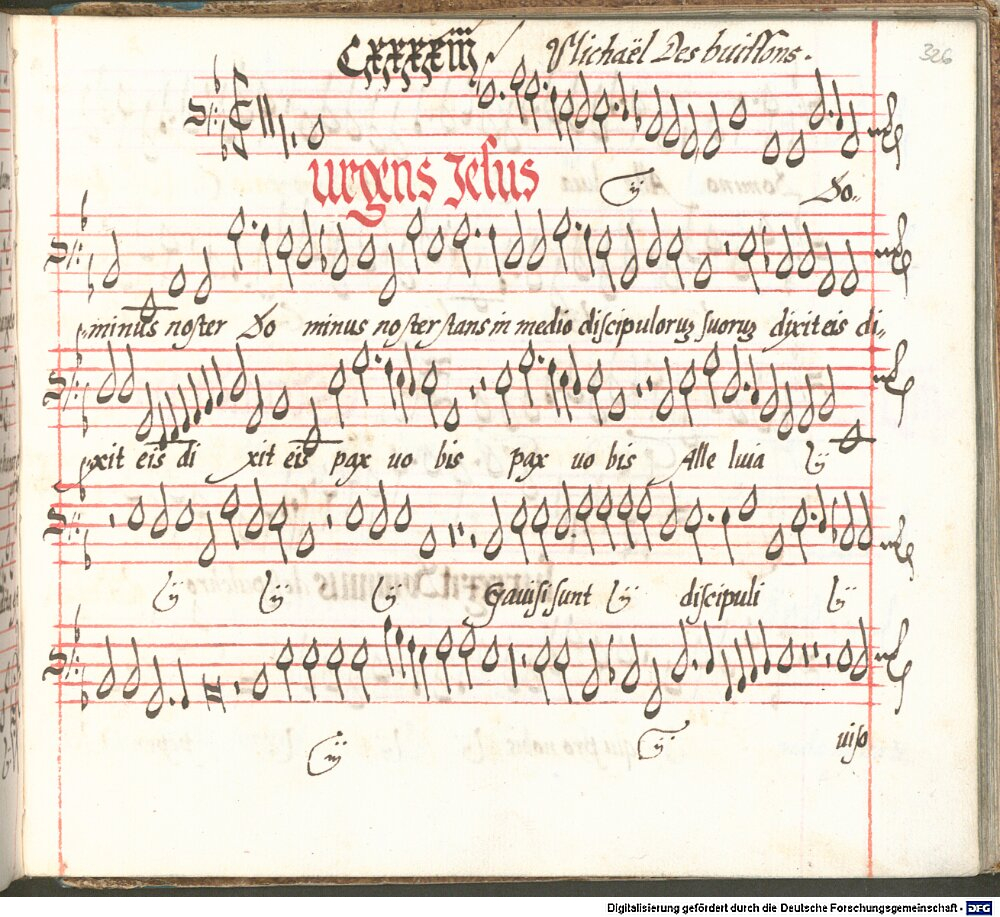 Cxxxxiii Michaël Des buissons. 326
urgens Jesus ij Do-
minus noster Do minus noster stans in medio discipuloruz suoruz dixit eis di-
xit eis di xit eis pax uo bis pax uo bis Alle luia ij
ij ij ij Gauisi sunt ij discipuli ij
ij ij uiso
Digitalisierung gefördert durch die Deutsche Forschungsgemeinschaft - DFG